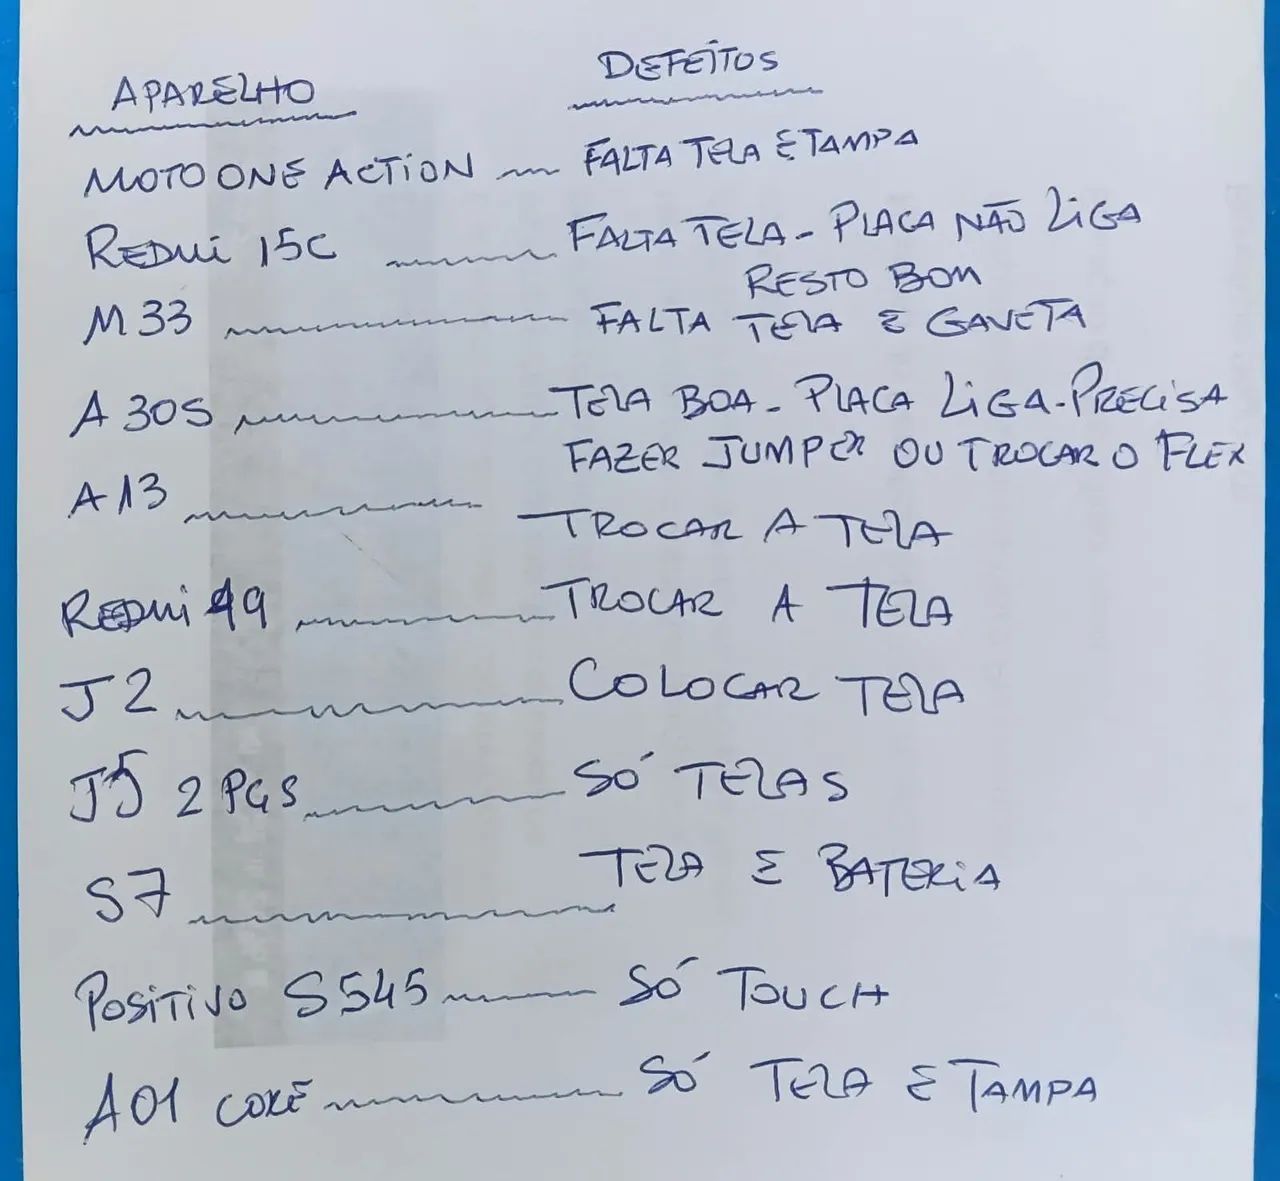 APARELHO DEFEITOS
MOTO ONE ACTION FALTA TELA E TAMPA
REDMI 15C FALTA TELA - PLACA NÃO LIGA
RESTO BOM
M33 FALTA TELA E GAVETA
A30S TELA BOA - PLACA LIGA - PRECISA
FAZER JUMPER OU TROCAR O FLEX
A13 TROCAR A TELA
REDMI 9 TROCAR A TELA
J2 COLOCAR TELA
J5 2 PÇS SÓ TELAS
S7 TELA E BATERIA
POSITIVO S545 SÓ TOUCH
A01 CORE SÓ TELA E TAMPA